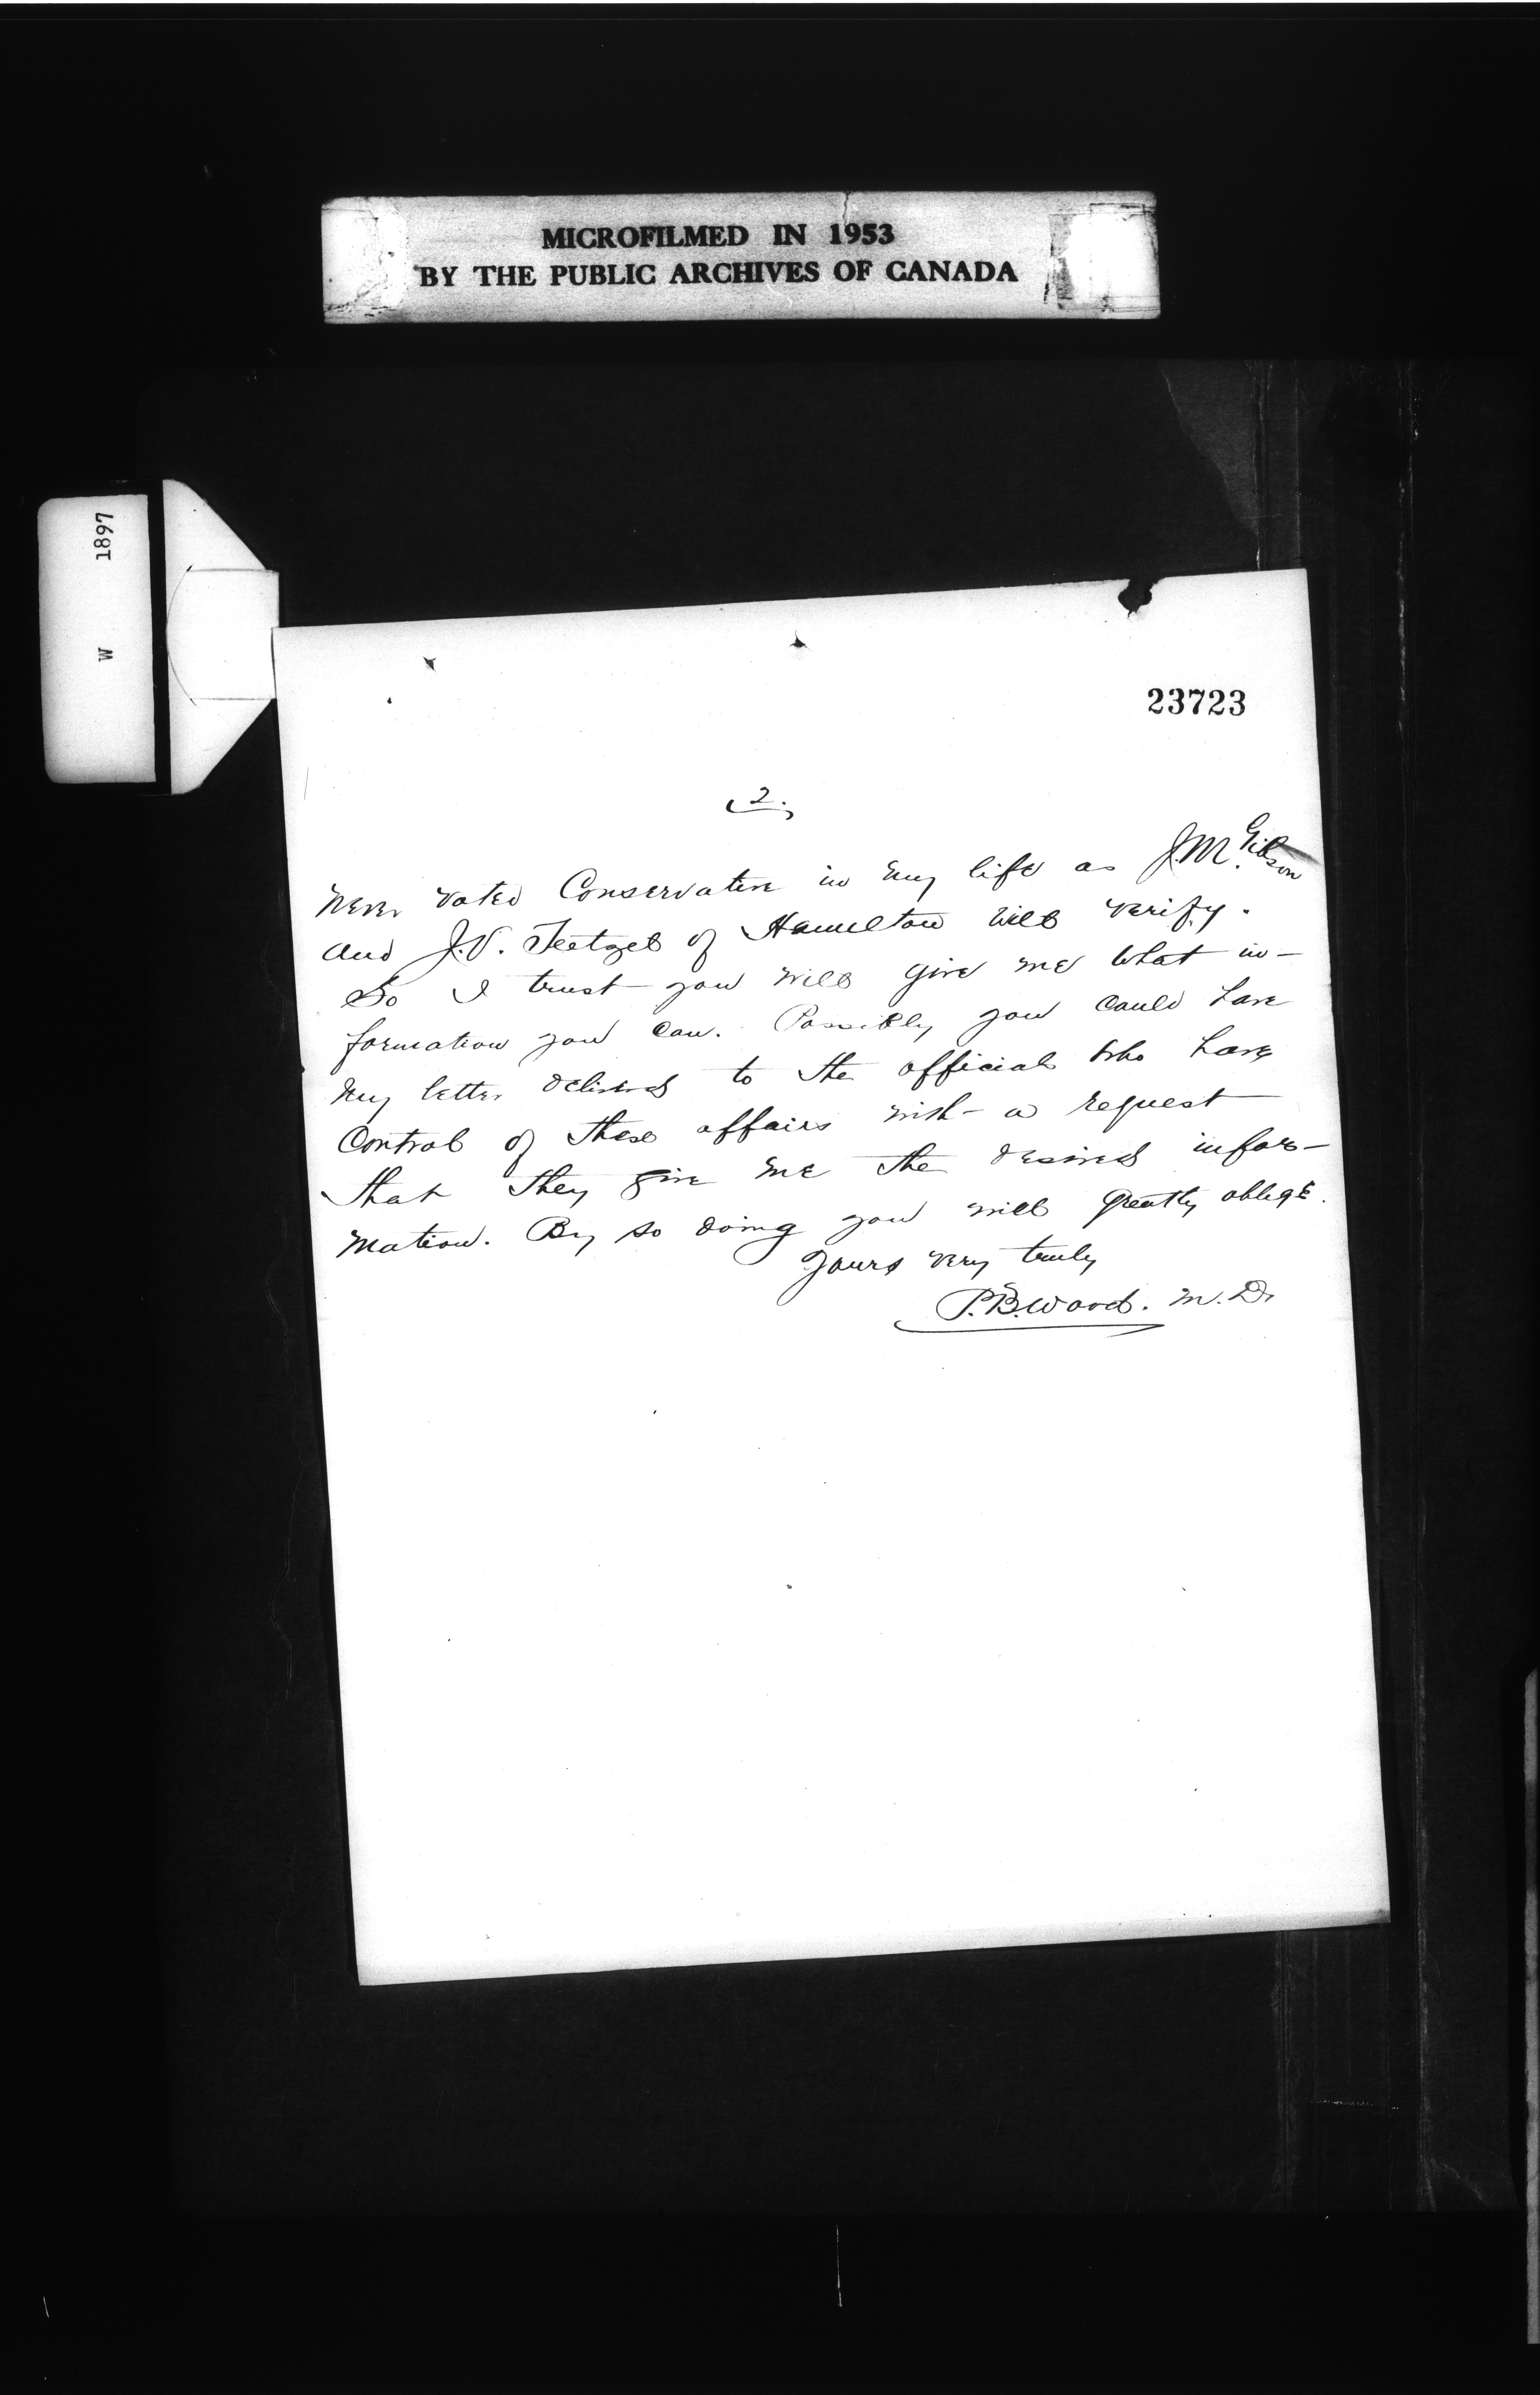 MICROFILMED IN 1953
BY THE PUBLIC ARCHIVES OF CANADA
W 1897
23723
2.
never voted Conservative in my life as J.M. Gibson
and J.V. Teetzel of Hamilton will verify.
So I trust you will give me what in-
formation you can. Possibly you could have
my letter delivered to the officials who have
Control of these affairs with a request
that they give me the desired infor-
mation. By so doing you will greatly oblige.
Yours very truly
P.B. Wood. M.D.